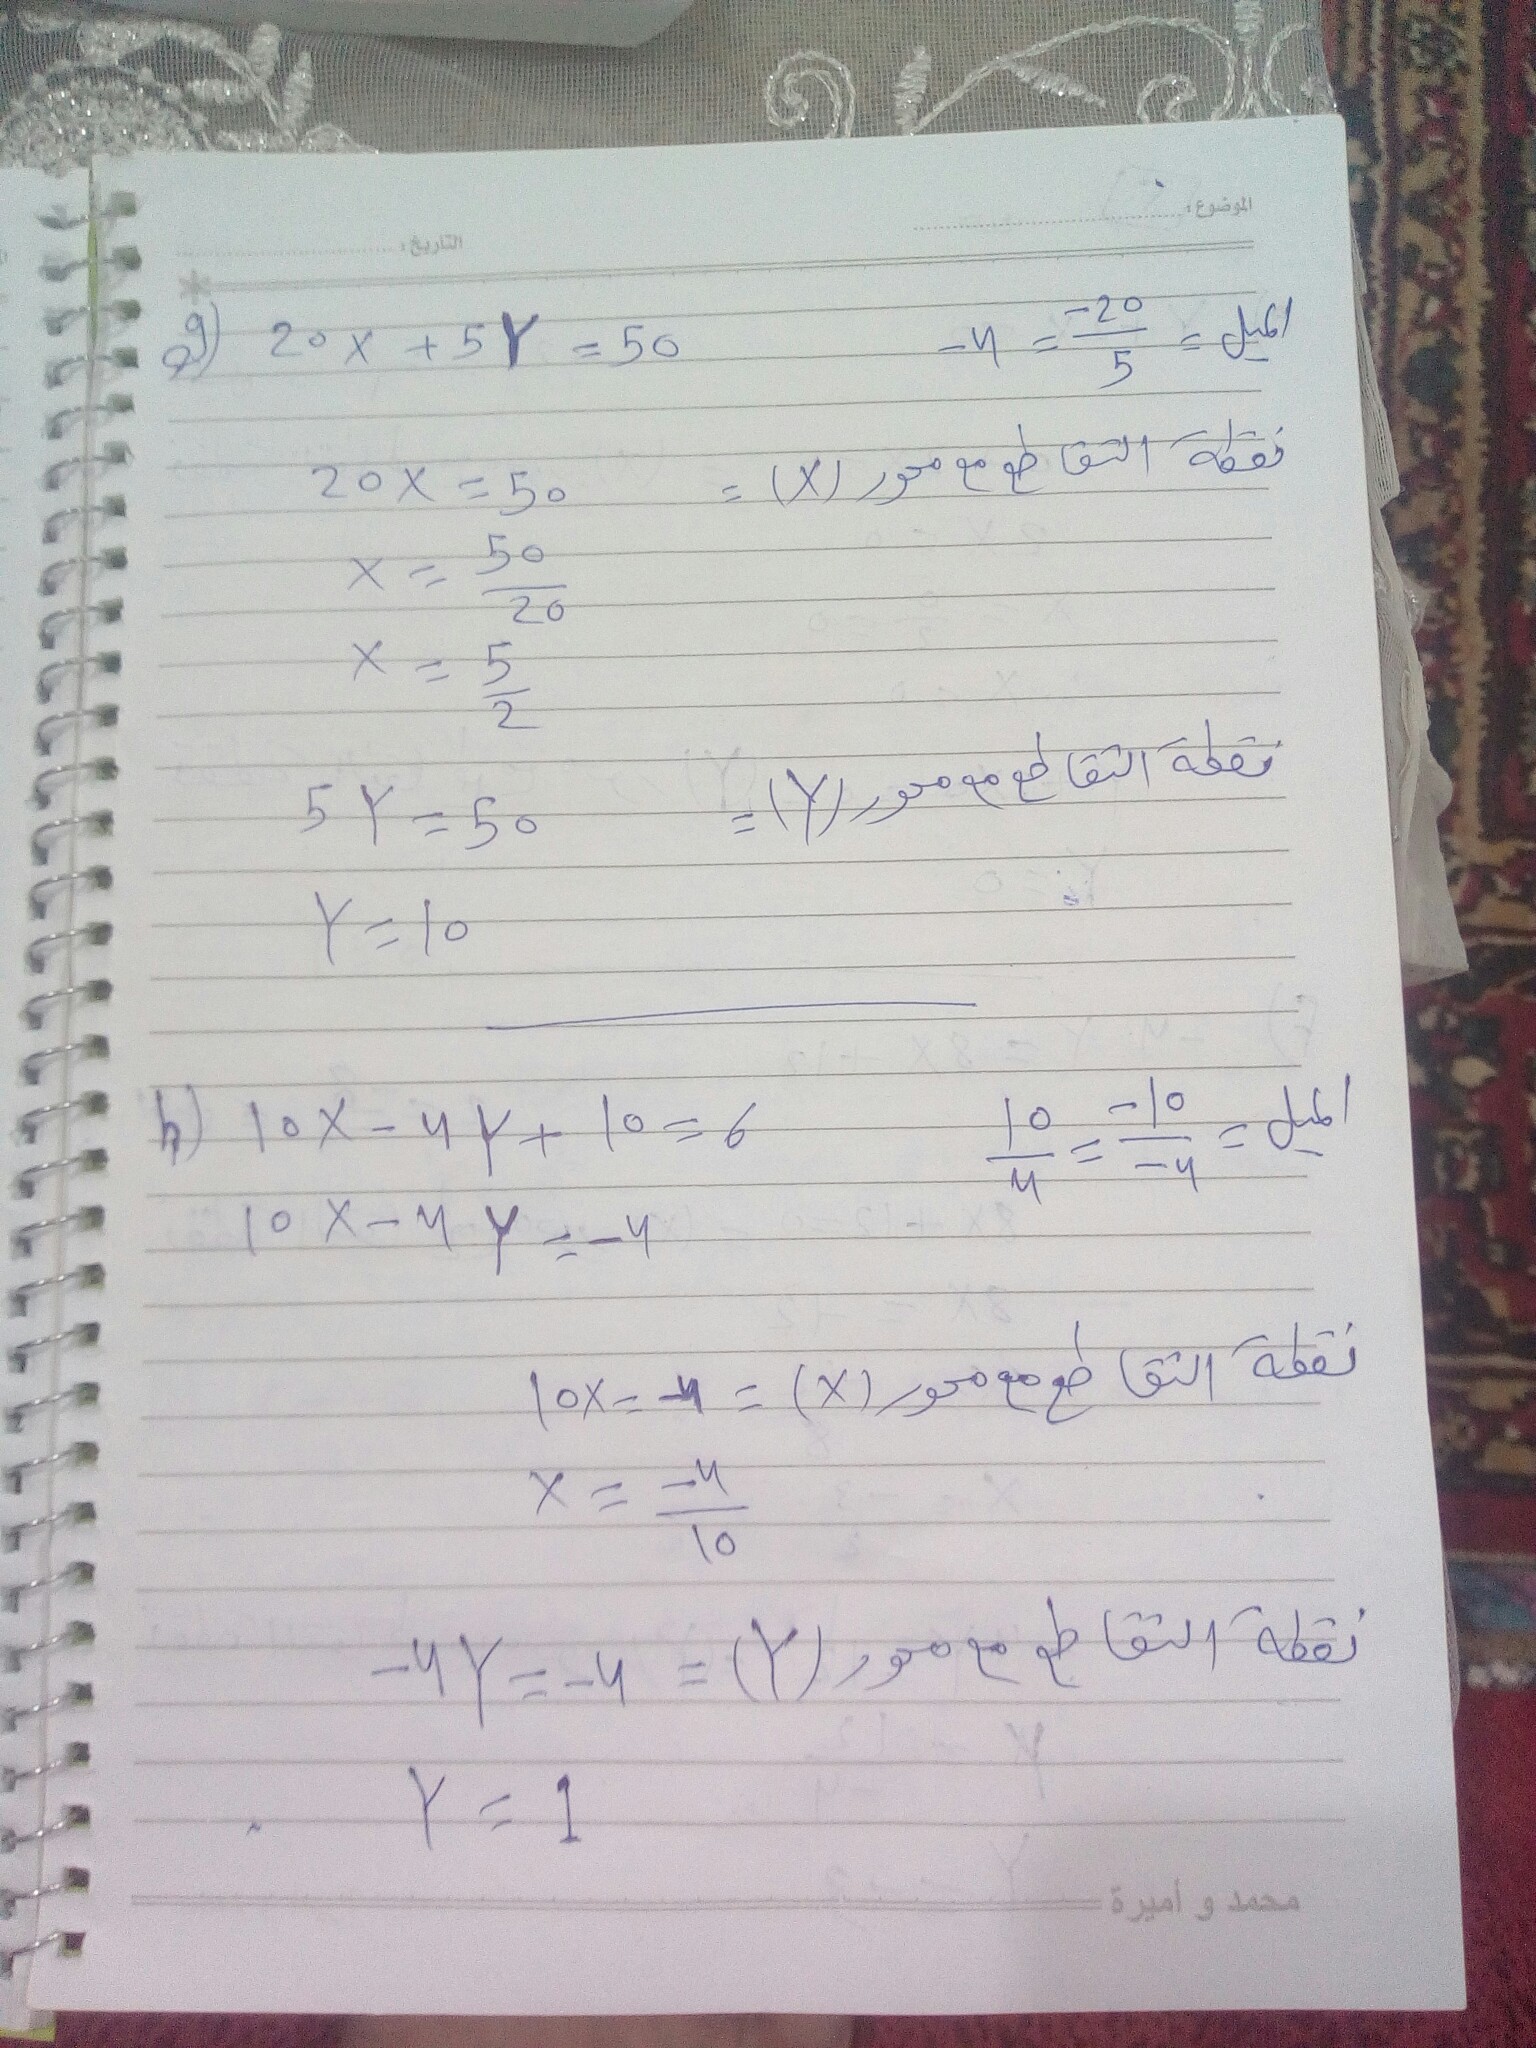 الموضوع:
التاريخ:
g) 20x + 5Y = 50 الميل = -20/5 = -4
نقطة التقاطع مع محور (X) = 20X = 50
X = 50/20
X = 5/2
نقطة التقاطع مع محور (Y) = 5Y = 50
Y = 10
h) 10X - 4Y + 10 = 6 الميل = -10/-4 = 10/4
10X - 4Y = -4
نقطة التقاطع مع محور (X) = 10X = -4
X = -4/10
نقطة التقاطع مع محور (Y) = -4Y = -4
Y = 1
محمد و أميرة